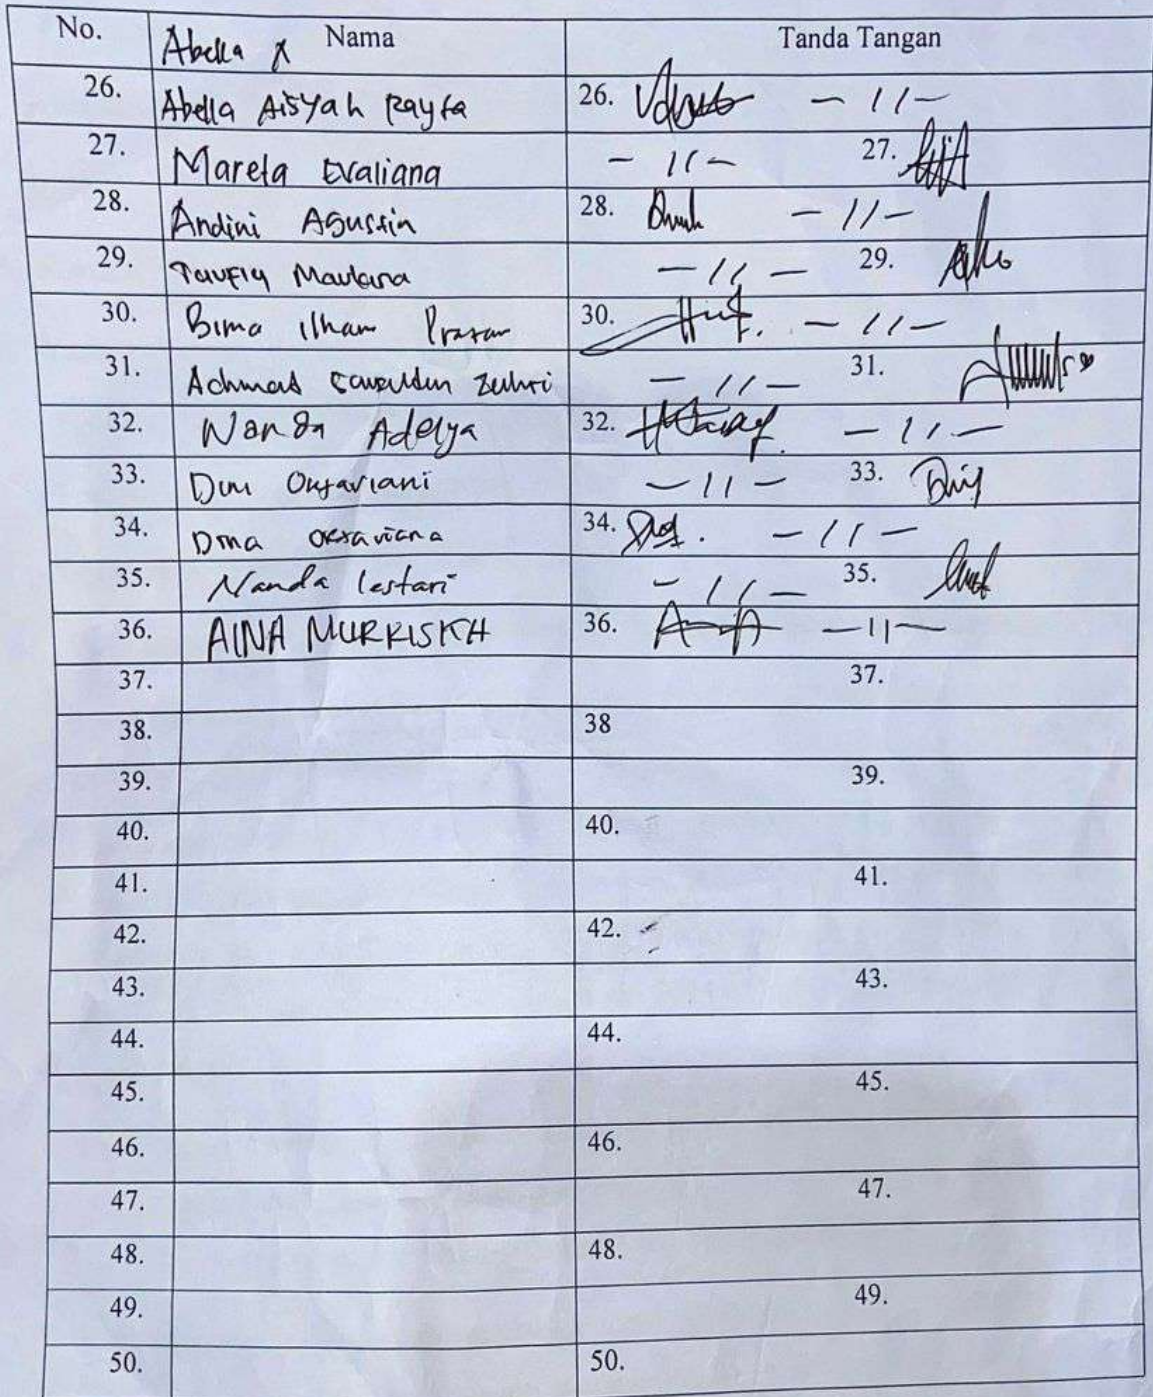 No. Nama Tanda Tangan
Abella
26. Abella Aisyah Rayfa 26. - 11 -
27. Marela Evaliana - 11 - 27.
28. Andini Agustin 28. - 11 -
29. Taufiq Maulana - 11 - 29.
30. Bima Ilham 30. - 11 -
31. Achmad Zuhri - 11 - 31.
32. Wanda Adelya 32. - 11 -
33. Dini Oktaviani - 11 - 33.
34. Dina Oktaviana 34. - 11 -
35. Nanda lestari - 11 - 35.
36. AINA 36. - 11 -
37. 37.
38. 38
39. 39.
40. 40.
41. 41.
42. 42.
43. 43.
44. 44.
45. 45.
46. 46.
47. 47.
48. 48.
49. 49.
50. 50.